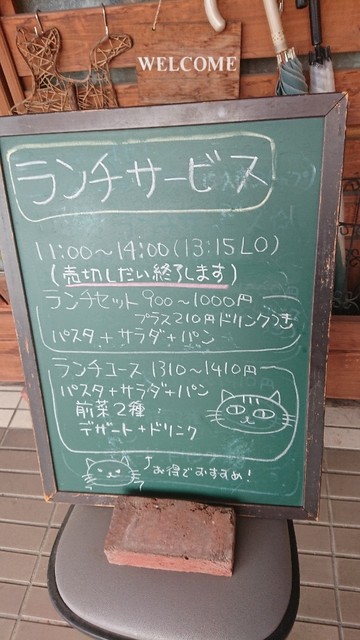 WELCOME
ランチサービス
11:00〜14:00(13:15LO)
(売切しだい終了します)
ランチセット 900〜1000円
プラス210円ドリンクつき
パスタ+サラダ+パン
ランチコース 1310〜1410円
パスタ+サラダ+パン
前菜2種
デザート+ドリンク
↑お得でおすすめ!